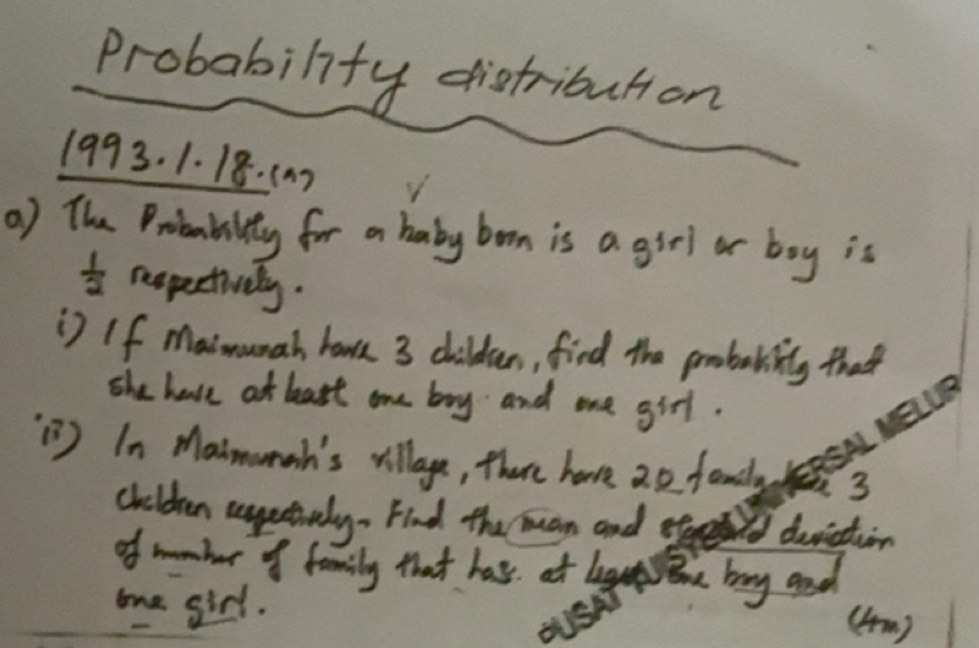 Probability distribution
1993.1.18.(a)
a) The Probability for a baby born is a girl or boy is
1/2 respectively.
i) If Maimunah have 3 children, find the probability that
she have at least one boy and one girl.
ii) In Maimunah's village, there have 20 family have 3
children respectively. Find the mean and standard deviation
of number of family that has at least one boy and
one girl.
(4m)
PUSAT UNIVERSAL MELUR